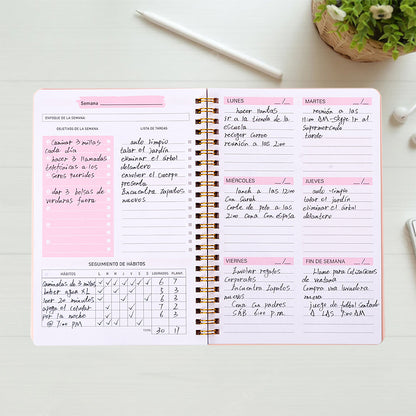 Semana
ENFOQUE DE LA SEMANA
OBJETIVOS DE LA SEMANA
caminar 3 millas
cada día
hacer 3 llamadas
telefónicas a los
seres queridos
dar 3 bolsas de
verduras fuera
LISTA DE TAREAS
auto limpio
talar el jardín
eliminar el árbol
delantero
envolver el cuerpo
presente
Encuentra zapatos
nuevos
SEGUIMIENTO DE HÁBITOS
HÁBITOS L M M J V S D LOGRADO PLAN?
caminadas de 3 millas 6 7
beber agua XL 3 3
leer 20 minutos 6 3
apaga el celular 2
por la noche 6 3
@ 7:00 PM
TOTAL 30 11
LUNES __/__
hacer llantas
ir a la tienda de la
escuela
recoger correo
reunión a las 2:00
MARTES __/__
reunión a las
11:00 AM -
Supermercado
tarde
MIÉRCOLES __/__
lunch a las 12:00
con Sarah
Corte de pelo a las
2:00 Cena con esposa
JUEVES __/__
auto limpio
talar el jardín
eliminar el árbol
delantero
VIERNES __/__
Envolver regalos
corporales
Encuentra zapatos
nuevos
Cena con padres
SAB. 6:00 p.m
FIN DE SEMANA __/__
Llame para cotizaciones
de ventana
Compra una lavadera
nueva
juego de futbol sentado
A LAS 9:00 AM